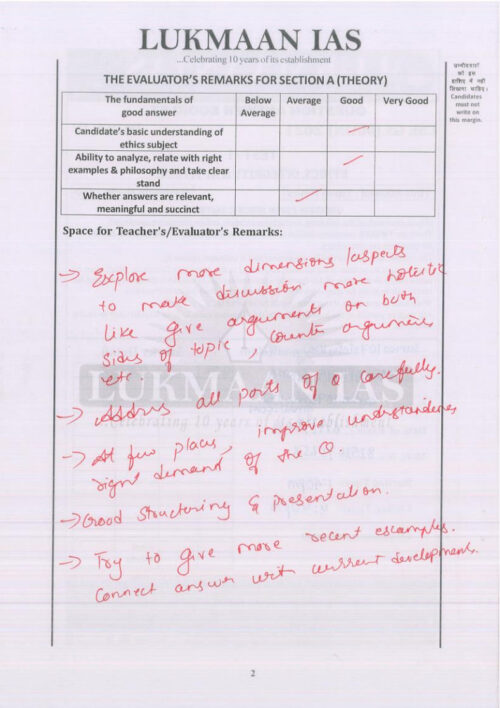 LUKMAAN IAS
...Celebrating 10 years of its establishment
THE EVALUATOR'S REMARKS FOR SECTION A (THEORY)
उम्मीदवारों
को इस
हाशिए में नहीं
लिखना चाहिए।
Candidates
must not
write on
this margin.
The fundamentals of good answer | Below Average | Average | Good | Very Good
Candidate's basic understanding of
ethics subject
Ability to analyze, relate with right
examples & philosophy and take clear
stand
Whether answers are relevant,
meaningful and succinct
Space for Teacher's/Evaluator's Remarks:
→ Explore more dimensions/aspects
to make discussion more holistic
like give arguments on both
sides of topic, counter arguments
etc.
→ Address all parts of Q carefully.
→ At few places, improve understanding
right demand of the Q
→ Good Structuring & presentation.
→ Try to give more recent examples.
Connect answer with current developments.
LUKMAAN IAS
...Celebrating 10 years of its establishment
2